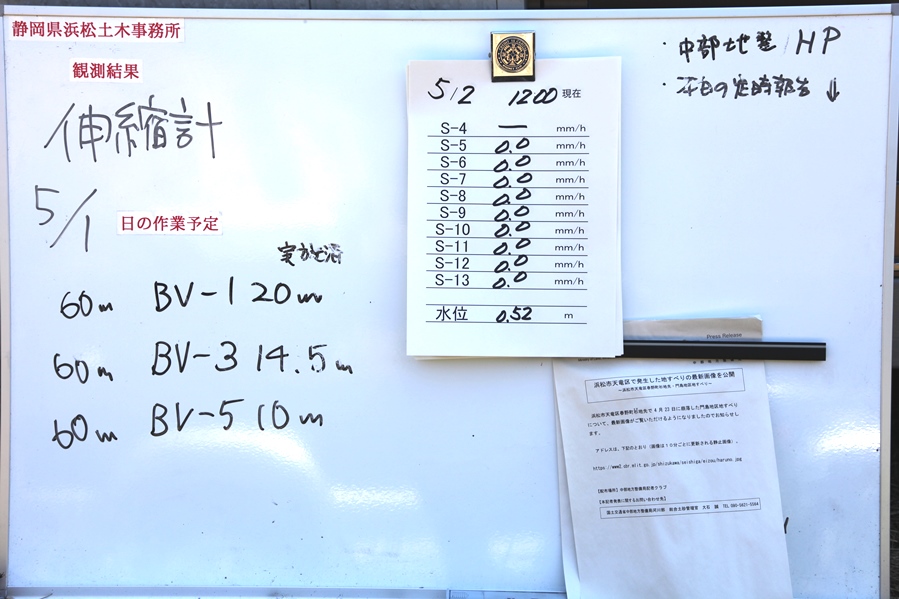 静岡県浜松土木事務所
観測結果
伸縮計
5/1 日の作業予定
実施済
60m BV-1 20m
60m BV-3 14.5m
60m BV-5 10m
5/2 1200 現在
S-4 — mm/h
S-5 0.0 mm/h
S-6 0.0 mm/h
S-7 0.0 mm/h
S-8 0.0 mm/h
S-9 0.0 mm/h
S-10 0.0 mm/h
S-11 0.0 mm/h
S-12 0.0 mm/h
S-13 0.0 mm/h
水位 0.52 m
・中部地整 HP
・の定時報告 ↓
Press Release
浜松市天竜区で発生した地すべりの最新画像を公開
～浜松市天竜区春野町杉地先・門島地区地すべり～
浜松市天竜区春野町杉地先で4月23日に崩落した門島地区地すべり
について、最新画像がご覧いただけるようになりましたのでお知らせし
ます。
アドレスは、下記のとおり（画像は10分ごとに更新される静止画像）。
【配布場所】中部地方整備局記者クラブ
【本記者発表に関するお問い合わせ先】
国土交通省中部地方整備局河川部